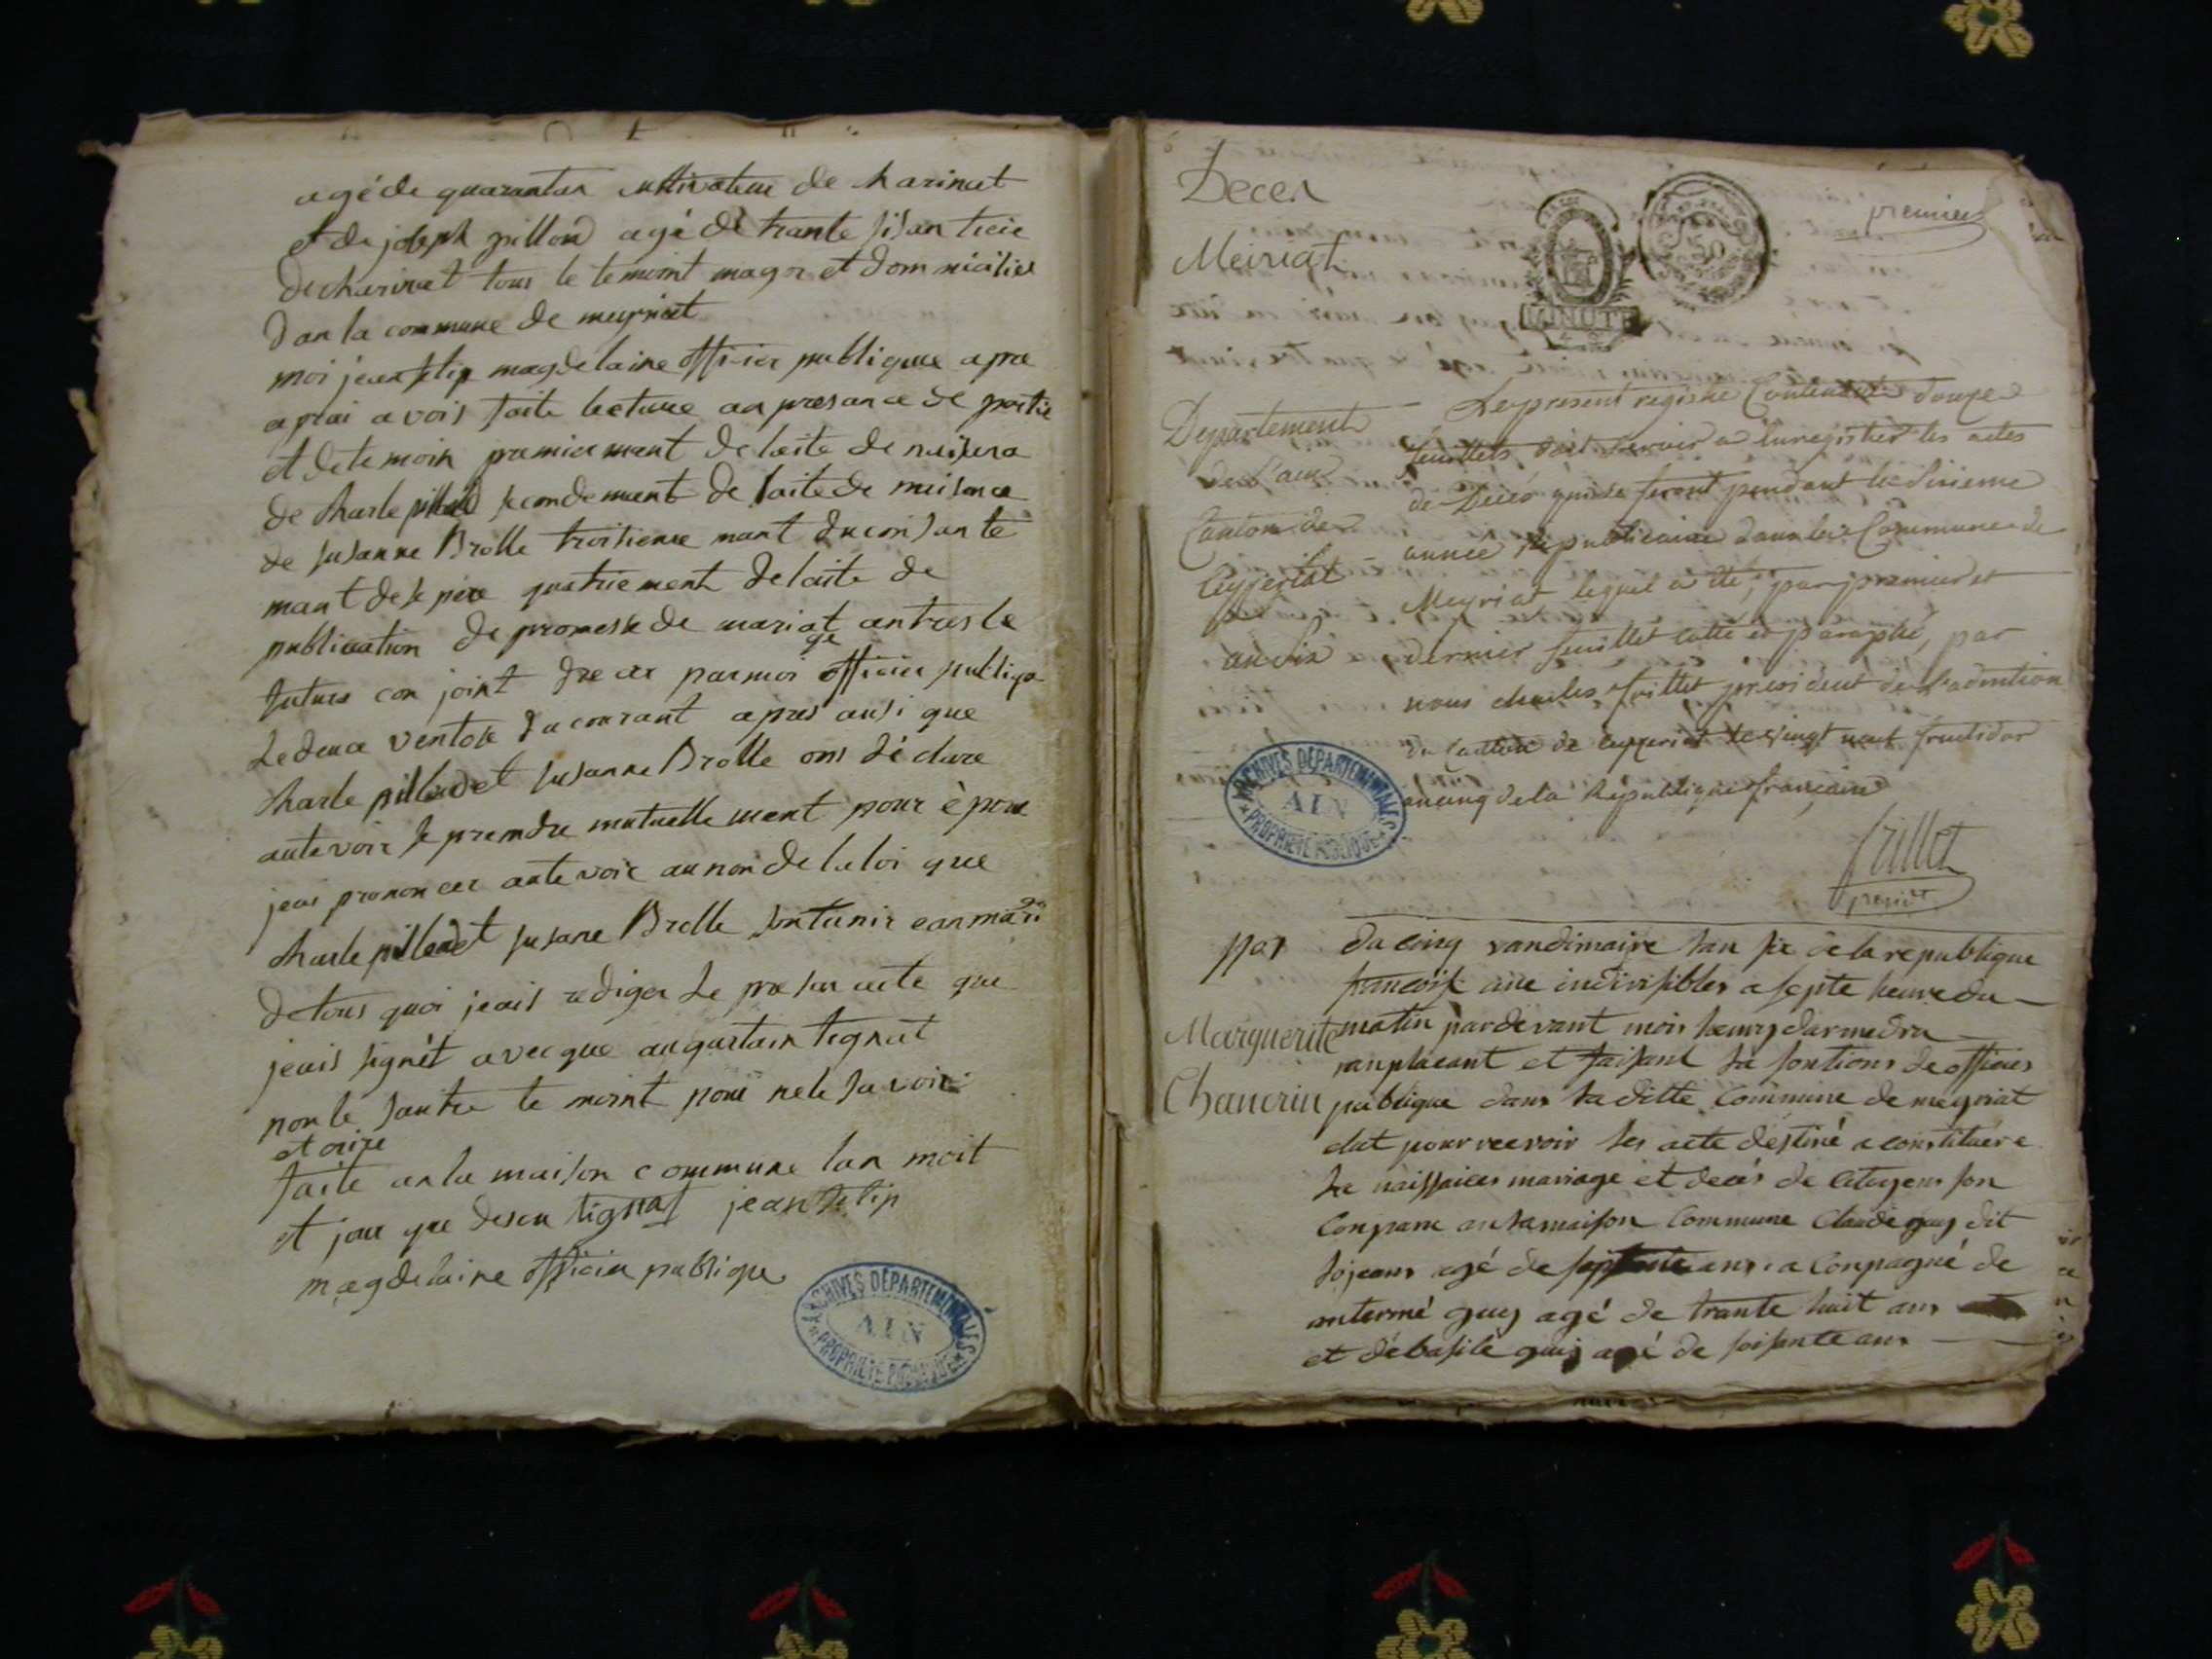 agé de quarantan cultivateur de charinat
et de joseph pillon agé de trante sisan tieie
de charinat tous le temoint magor et domnicilies
dan la commune de meyriat
moi jean felip magdelaine officier publique apre
aprai avois faite lecture an presance de partie
et de temoin premiermant de laite de
de charle pillard secondemant de laite de naisance
de susanne Brolle troisieme mant du consante
mant de se père quatriement de laite de
publication de promesse de mariat antres le
ge
futurs con joint drecer par moi officier publiqe
le deuce ventose du courant apres ausi que
charle pillerdet susanne Brolle ons déclare
autevoir se prendre mutuellemant pour èpous
jeai prononcer autevoir au non de la loi que
charle pillerdet susane Brolle sontunir eanmari
de tous quoi jeais rediger le presan acte que
jeais signét avecque augustain tignat
non le sautre temoint pour nele savoir
et crire
faite an la maison commune lan moit
et jour que desu tignat jean felip
magdelaine officier publique
ARCHIVES DÉPARTEMENTALES
AIN
PROPRIÉTÉ PUBLIQUE
Deces
Meiriat
premier
50
MINUTE
Departement
de l'ain
Canton de
Ceyzeriat
an six
Le present registre Contenant douze
feuillets doit servir a enregistrer les actes
de Décés qui se feront pendant le sixieme
année Republicaine dans la Commune de
Meyriat lequel a été, par premier et
dernier feuillet cotté et paraphé, par
nous charles frillet president de l'adm̃tion
du Canton de ceyzeriat le vingt neuf fructidor
an cinq de la République française
frillet
presidt
par
Marguerite
Chanerin
du cinq vandimaire lan six de la republique
francoise une indivisibles a septe heure du
matin pardevant moi henry darmedra
ranplacant et faisant la fontions de officies
publique dans la ditte Commune de meyriat
elut pour recevoir les acte destiné a constituere
la naissaices mariage et decés de Citoyens son
Conparu an la maison Commune Claude guy dit
lojeans agé de septente ans a Conpagné de
antermé guy agé de trante huit ans
et débasile guy agé de soisante ans
ARCHIVES DÉPARTEMENTALES
AIN
PROPRIÉTÉ PUBLIQUE